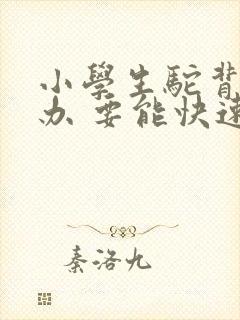 小學生駝背
办 要能快速
秦洛九